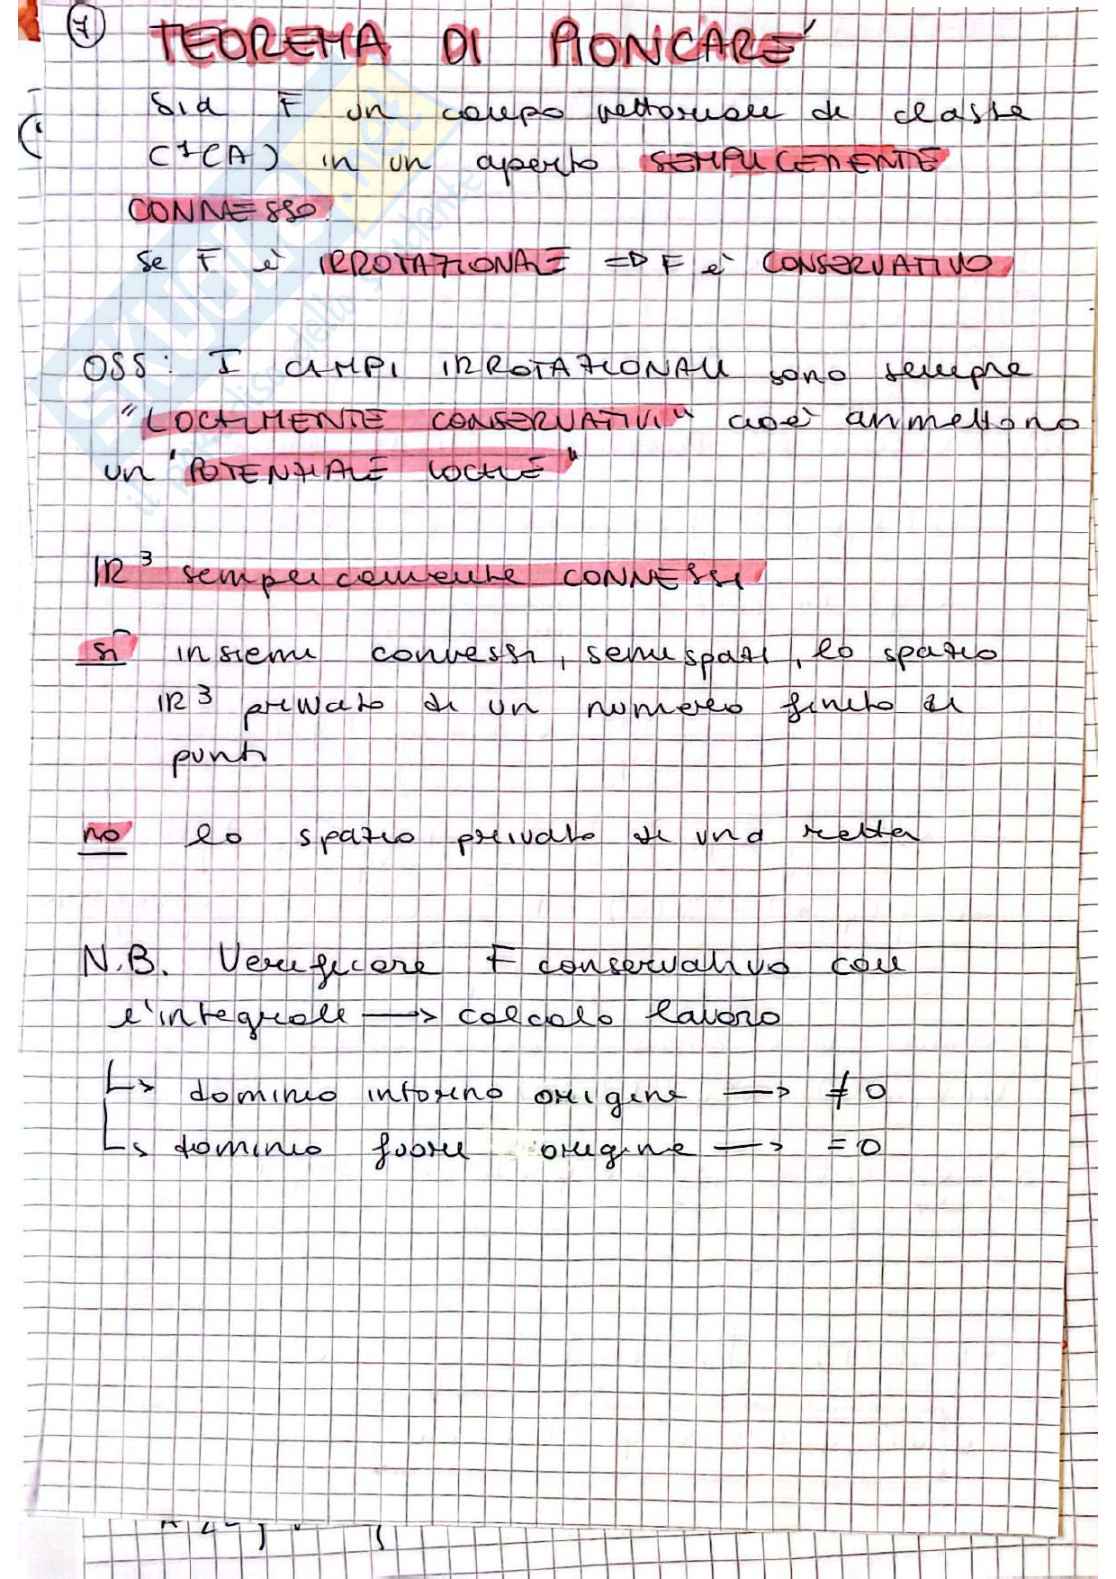 7 TEOREMA DI PIONCARÉ
Sia F un campo vettoriale di classe
C1(A) in un aperto SEMPLICEMENTE
CONNESSO.
Se F è IRROTAZIONALE => F è CONSERVATIVO
OSS: I CAMPI IRROTAZIONALI sono sempre
"LOCALMENTE CONSERVATIVI" cioè ammettono
un "POTENZIALE LOCALE"
IR³ semplicemente CONNESSI
sì insiemi convessi, semispazi, lo spazio
IR³ privato di un numero finito di
punti
no lo spazio privato di una retta
N.B. Verificare F conservativo con
l'integrale → calcolo lavoro
↳ dominio intorno origine → ≠0
↳ dominio fuori origine → =0